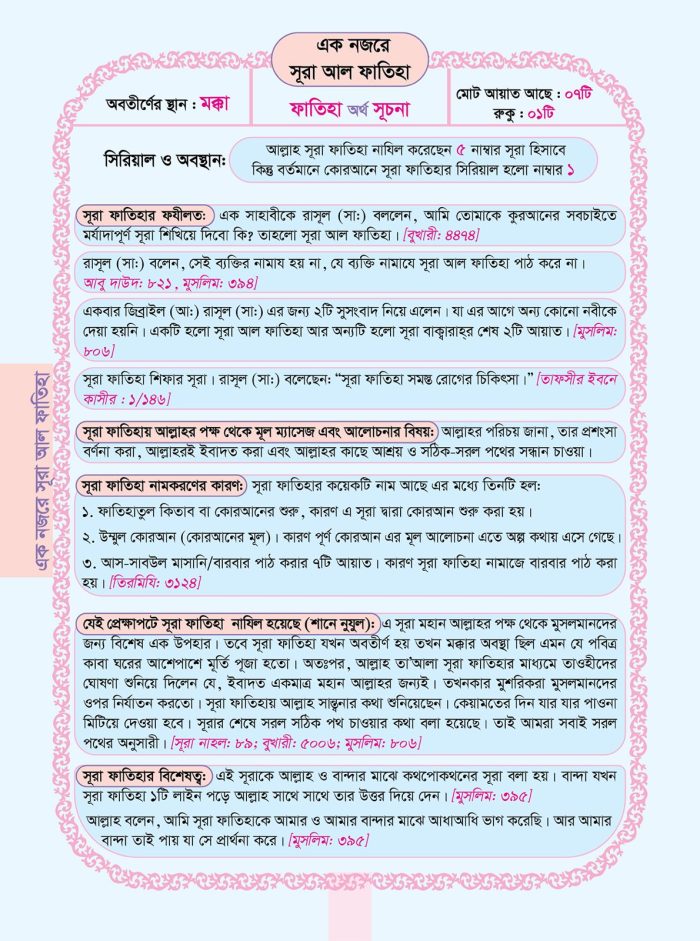 এক নজরে
সূরা আল ফাতিহা
অবতীর্ণের স্থান : মক্কা
ফাতিহা অর্থ সূচনা
মোট আয়াত আছে : ০৭টি
রুকু : ০১টি
সিরিয়াল ও অবস্থান:
আল্লাহ সূরা ফাতিহা নাযিল করেছেন ৫ নাম্বার সূরা হিসাবে
কিন্তু বর্তমানে কোরআনে সূরা ফাতিহার সিরিয়াল হলো নাম্বার ১
সূরা ফাতিহার ফযীলত: এক সাহাবীকে রাসূল (সা:) বললেন, আমি তোমাকে কুরআনের সবচাইতে
মর্যাদাপূর্ণ সূরা শিখিয়ে দিবো কি? তাহলো সূরা আল ফাতিহা। [বুখারী: ৪৪৭৪]
রাসূল (সা:) বলেন, সেই ব্যক্তির নামায হয় না, যে ব্যক্তি নামাযে সূরা আল ফাতিহা পাঠ করে না।
আবু দাউদ: ৮২১, মুসলিম: ৩৯৪]
একবার জিব্রাইল (আ:) রাসূল (সা:) এর জন্য ২টি সুসংবাদ নিয়ে এলেন। যা এর আগে অন্য কোনো নবীকে
দেয়া হয়নি। একটি হলো সূরা আল ফাতিহা আর অন্যটি হলো সূরা বাক্বারাহ্‌র শেষ ২টি আয়াত। [মুসলিম:
৮০৬]
সূরা ফাতিহা শিফার সূরা। রাসূল (সা:) বলেছেন: “সূরা ফাতিহা সমস্ত রোগের চিকিৎসা।” [তাফসীর ইবনে
কাসীর : ১/১৪৬]
সূরা ফাতিহায় আল্লাহর পক্ষ থেকে মূল ম্যাসেজ এবং আলোচনার বিষয়: আল্লাহর পরিচয় জানা, তার প্রশংসা
বর্ণনা করা, আল্লাহরই ইবাদত করা এবং আল্লাহর কাছে আশ্রয় ও সঠিক-সরল পথের সন্ধান চাওয়া।
সূরা ফাতিহা নামকরণের কারণ: সূরা ফাতিহার কয়েকটি নাম আছে এর মধ্যে তিনটি হল:
১. ফাতিহাতুল কিতাব বা কোরআনের শুরু, কারণ এ সূরা দ্বারা কোরআন শুরু করা হয়।
২. উম্মুল কোরআন (কোরআনের মূল)। কারণ পূর্ণ কোরআন এর মূল আলোচনা এতে অল্প কথায় এসে গেছে।
৩. আস-সাবউল মাসানি/বারবার পাঠ করার ৭টি আয়াত। কারণ সূরা ফাতিহা নামাজে বারবার পাঠ করা
হয়। [তিরমিযি: ৩১২৪]
যেই প্রেক্ষাপটে সূরা ফাতিহা নাযিল হয়েছে (শানে নুযুল): এ সূরা মহান আল্লাহর পক্ষ থেকে মুসলমানদের
জন্য বিশেষ এক উপহার। তবে সূরা ফাতিহা যখন অবতীর্ণ হয় তখন মক্কার অবস্থা ছিল এমন যে পবিত্র
কাবা ঘরের আশেপাশে মূর্তি পূজা হতো। অতঃপর, আল্লাহ তা'আলা সূরা ফাতিহার মাধ্যমে তাওহীদের
ঘোষণা শুনিয়ে দিলেন যে, ইবাদত একমাত্র মহান আল্লাহর জন্যই। তখনকার মুশরিকরা মুসলমানদের
ওপর নির্যাতন করতো। সূরা ফাতিহায় আল্লাহ সান্ত্বনার কথা শুনিয়েছেন। কেয়ামতের দিন যার যার পাওনা
মিটিয়ে দেওয়া হবে। সূরার শেষে সরল সঠিক পথ চাওয়ার কথা বলা হয়েছে। তাই আমরা সবাই সরল
পথের অনুসারী। [সূরা নাহল: ৮৯; বুখারী: ৫০০৬; মুসলিম: ৮০৬]
সূরা ফাতিহার বিশেষত্ব: এই সূরাকে আল্লাহ ও বান্দার মাঝে কথপোকথনের সূরা বলা হয়। বান্দা যখন
সূরা ফাতিহা ১টি লাইন পড়ে আল্লাহ সাথে সাথে তার উত্তর দিয়ে দেন। [মুসলিম: ৩৯৫]
আল্লাহ বলেন, আমি সূরা ফাতিহাকে আমার ও আমার বান্দার মাঝে আধাআধি ভাগ করেছি। আর আমার
বান্দা তাই পায় যা সে প্রার্থনা করে। [মুসলিম: ৩৯৫]
এক নজরে সূরা আল ফাতিহা